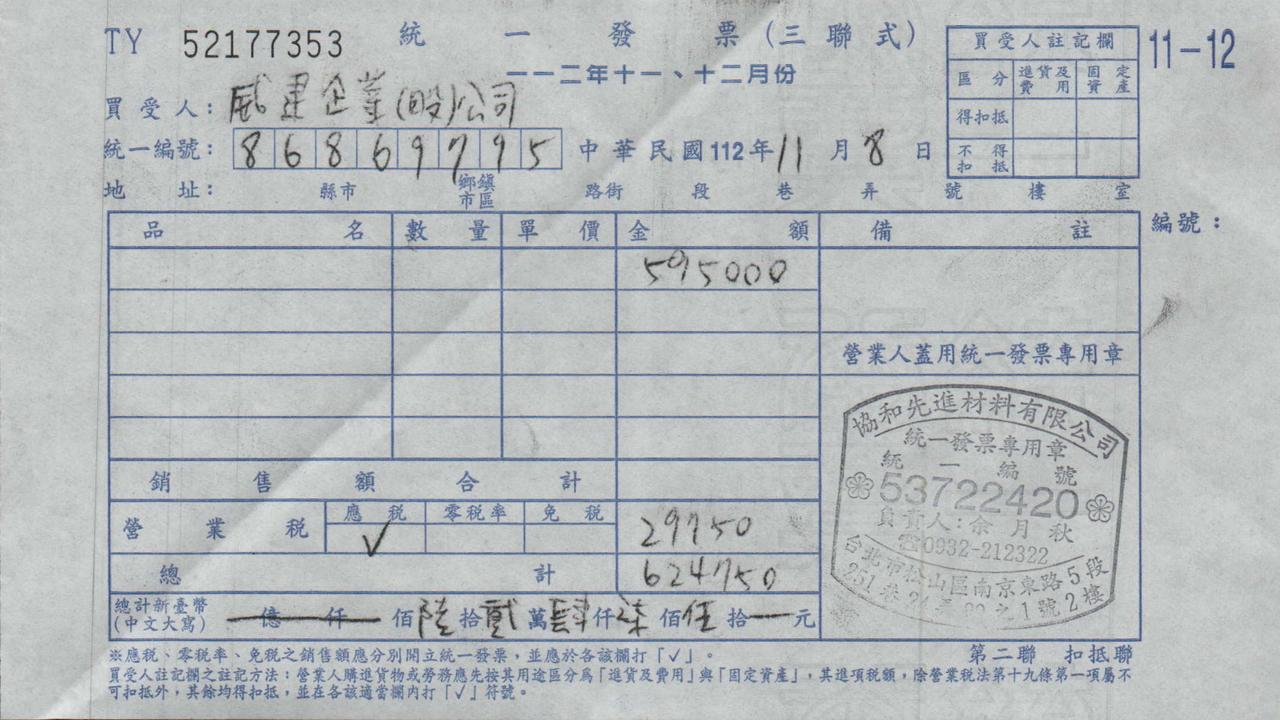 TY 52177353 統一發票(三聯式)
一一二年十一、十二月份
11-12
買受人註記欄
區分 進貨及費用 固定資產
得扣抵
不得扣抵
買受人: 威建企業(股)公司
統一編號: 86869795 中華民國112年11月8日
地址: 縣市 鄉鎮市區 路街 段 巷 弄 號 樓 室
品名 數量 單價 金額 備註 編號:
595000
營業人蓋用統一發票專用章
協和先進材料有限公司
統一發票專用章
統一編號
53722420
負責人:余月秋
☎0932-212322
台北市松山區南京東路5段
251巷 之1號2樓
銷售額合計
營業稅 應稅 零稅率 免稅
✓ 29750
總計 624750
總計新臺幣(中文大寫) 億 仟 佰陸拾貳萬肆仟柒佰伍拾 元
※應稅、零稅率、免稅之銷售額應分別開立統一發票,並應於各該欄打「✓」。 第二聯 扣抵聯
買受人註記欄之註記方法:營業人購進貨物或勞務應先按其用途區分為「進貨及費用」與「固定資產」,其進項稅額,除營業稅法第十九條第一項屬不
可扣抵外,其餘均得扣抵,並在各該適當欄內打「✓」符號。